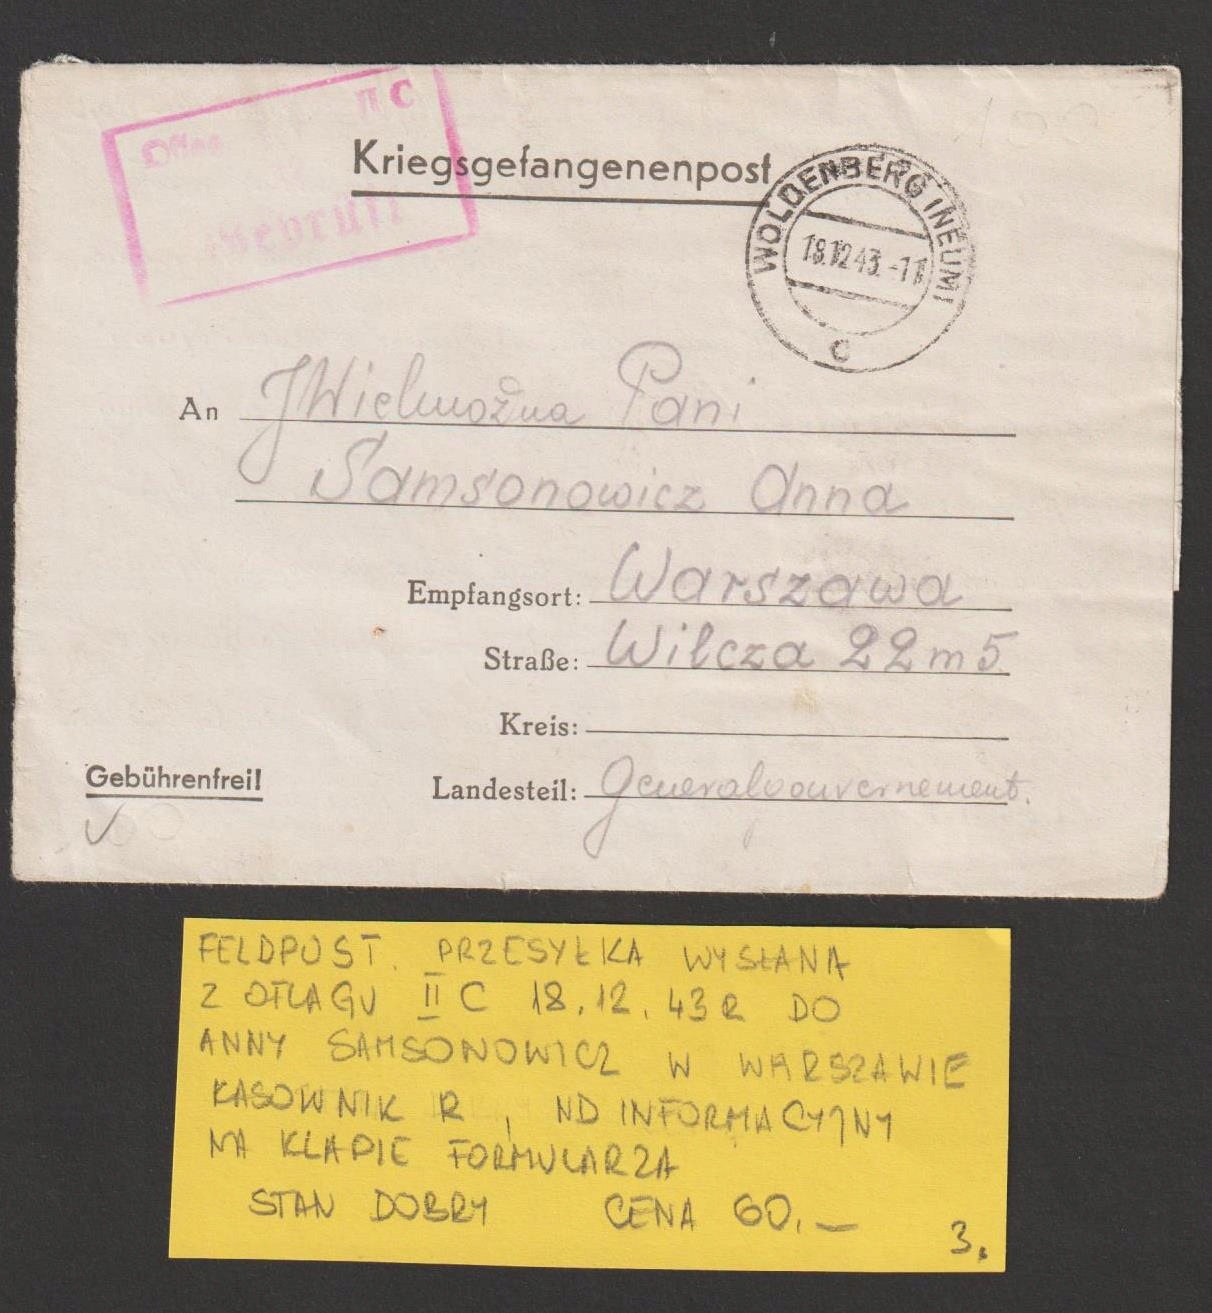 Oflag II C
Geprüft
Kriegsgefangenenpost
WOLDENBERG (NEUM)
18.12.43.-11
c
An JWielmożna Pani
Samsonowicz Anna
Empfangsort: Warszawa
Straße: Wilcza 22 m 5
Kreis:
Gebührenfrei!
Landesteil: Generalgouvernement.
FELDPOST. PRZESYŁKA WYSŁANA
Z OFLAGU II C 18.12.43 R DO
ANNY SAMSONOWICZ W WARSZAWIE
KASOWNIK R, ND INFORMACYJNY
NA KLAPIE FORMULARZA
STAN DOBRY CENA 60.—
3.